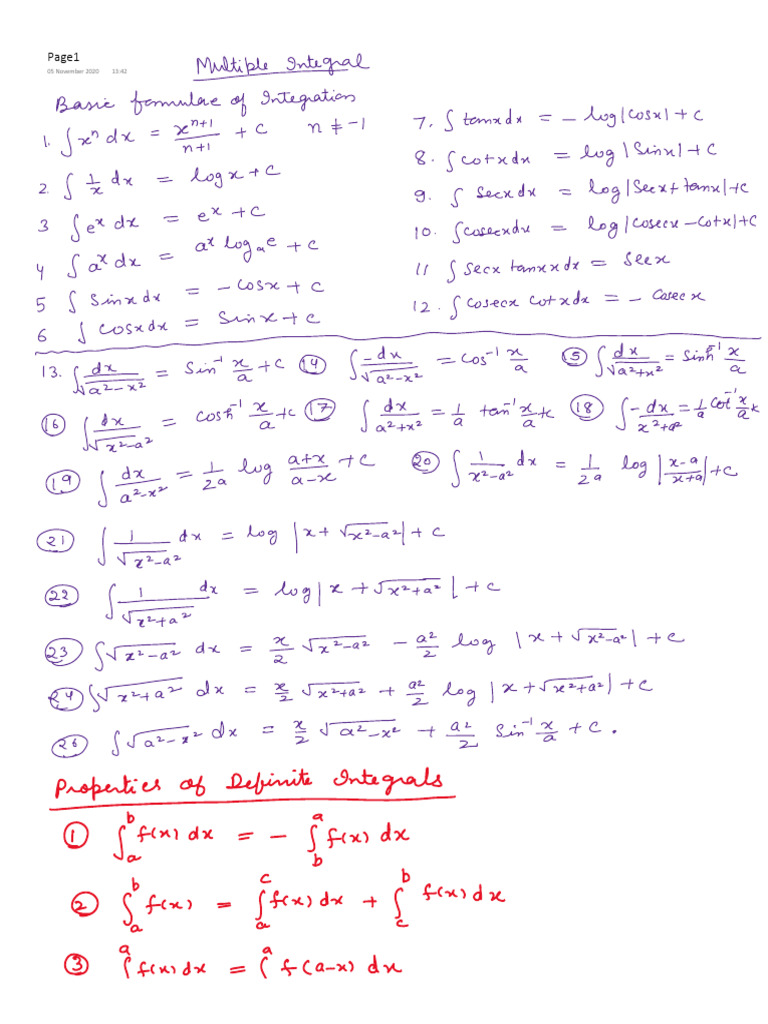 Page1
05 November 2020 13:42
Multiple Integral
Basic formulae of Integration
1. ∫xⁿ dx = xⁿ⁺¹/n+1 + C n ≠ -1
2. ∫ 1/x dx = log x + C
3 ∫eˣ dx = eˣ + C
4 ∫ aˣ dx = aˣ logₐe + C
5 ∫ Sinx dx = - Cosx + C
6 ∫ Cosx dx = Sinx + C
7. ∫ tanx dx = - log|Cosx| + C
8. ∫ Cotx dx = log |Sinx| + C
9. ∫ Secx dx = log|Secx + tanx| + C
10. ∫ Cosecx dx = log |Cosecx - Cotx| + C
11 ∫ Secx tanxx dx = Secx
12. ∫ Cosecx Cotx dx = - Cosecx
13. ∫ dx/√a²-x² = Sin⁻¹ x/a + C 14 ∫ -dx/√a²-x² = Cos⁻¹ x/a 5 ∫ dx/√a²+x² = Sinh⁻¹ x/a
16 ∫ dx/√x²-a² = Cosh⁻¹ x/a + C 17 ∫ dx/a²+x² = 1/a tan⁻¹ x/a + k 18 ∫ -dx/x²+a² = 1/a Cot⁻¹ x/a k
19 ∫ dx/a²-x² = 1/2a log a+x/a-x + C 20 ∫ 1/x²-a² dx = 1/2a log |x-a/x+a| + C
21 ∫ 1/√x²-a² dx = log |x + √x²-a²| + C
22 ∫ 1/√x²+a² dx = log| x + √x²+a² | + C
23 ∫√x²-a² dx = x/2 √x²-a² - a²/2 log |x + √x²-a²| + C
24 ∫√x²+a² dx = x/2 √x²+a² + a²/2 log |x + √x²+a²| + C
26 ∫√a²-x² dx = x/2 √a²-x² + a²/2 Sin⁻¹ x/a + C.
Properties of Definite Integrals
1 ∫ₐᵇ f(x) dx = - ∫_b^a f(x) dx
2 ∫ₐᵇ f(x) = ∫_a^c f(x) dx + ∫_c^b f(x) dx
3 ∫^a f(x) dx = ∫^a f(a-x) dx